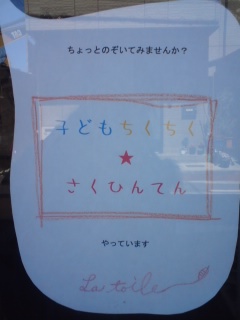 ちょっとのぞいてみませんか？
子どもちくちく
★
さくひんてん
やっています
La toile